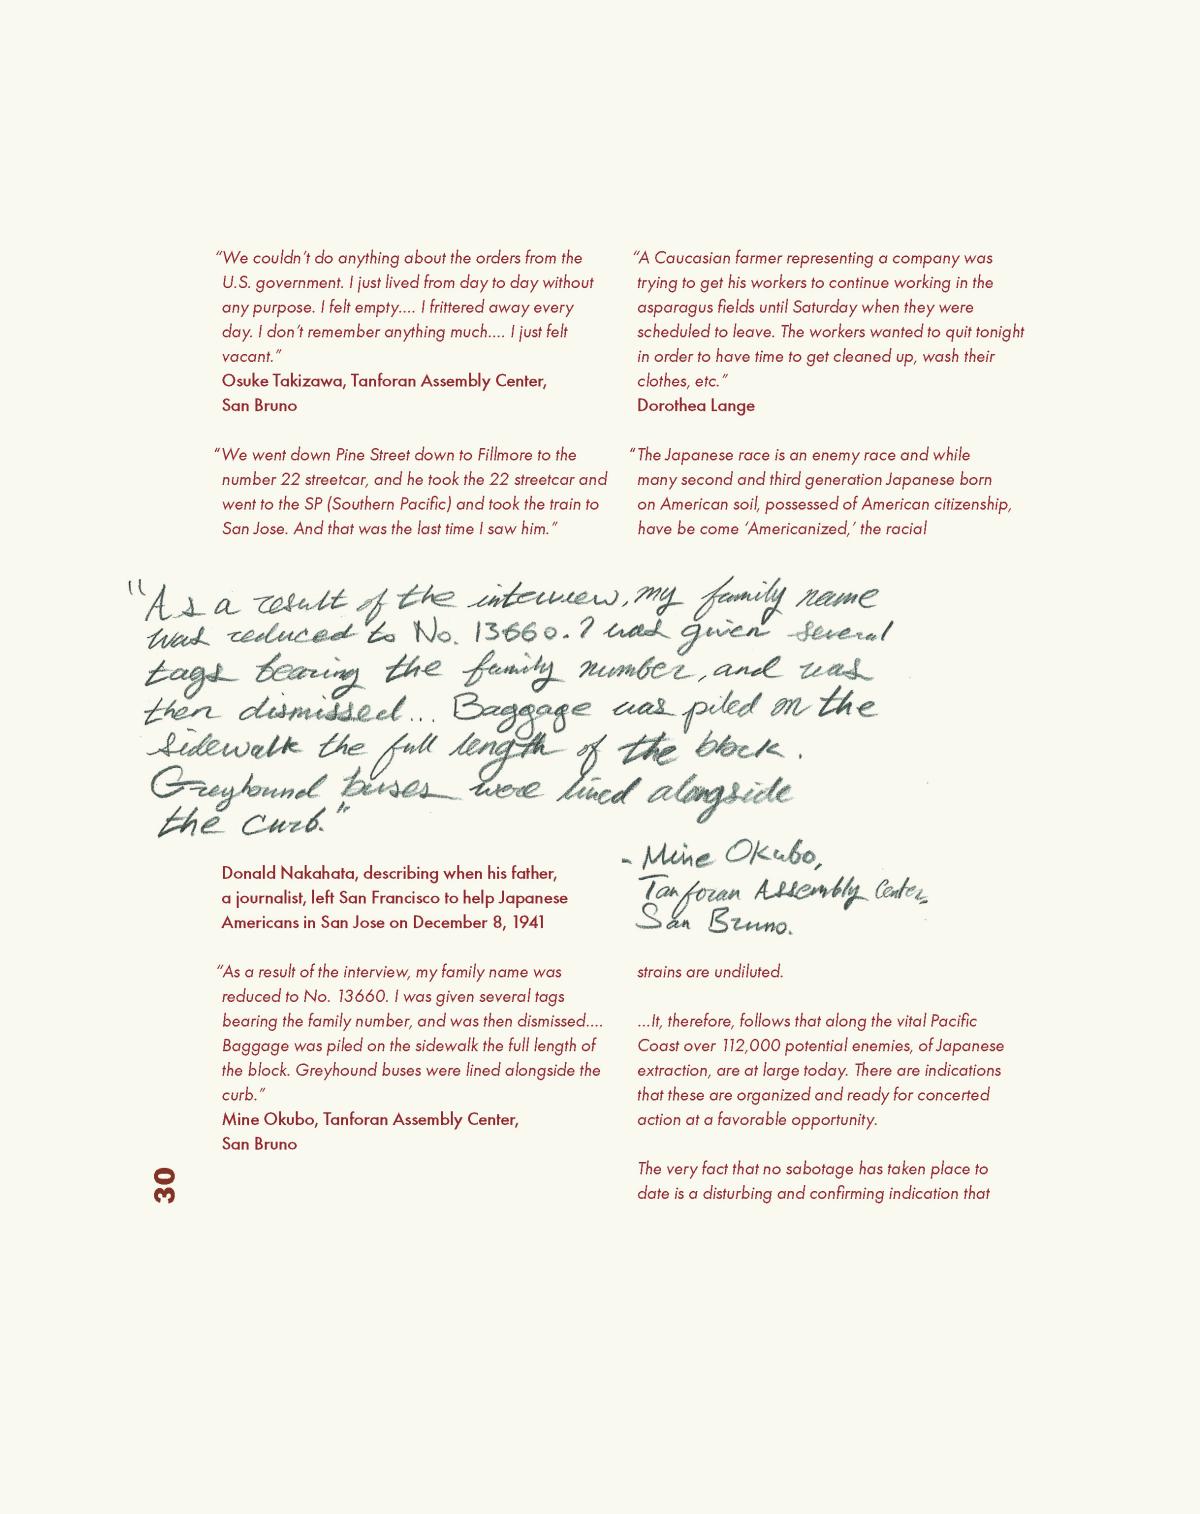 “We couldn’t do anything about the orders from the
U.S. government. I just lived from day to day without
any purpose. I felt empty.... I frittered away every
day. I don’t remember anything much.... I just felt
vacant.”
Osuke Takizawa, Tanforan Assembly Center,
San Bruno
“We went down Pine Street down to Fillmore to the
number 22 streetcar, and he took the 22 streetcar and
went to the SP (Southern Pacific) and took the train to
San Jose. And that was the last time I saw him.”
“A Caucasian farmer representing a company was
trying to get his workers to continue working in the
asparagus fields until Saturday when they were
scheduled to leave. The workers wanted to quit tonight
in order to have time to get cleaned up, wash their
clothes, etc.”
Dorothea Lange
“The Japanese race is an enemy race and while
many second and third generation Japanese born
on American soil, possessed of American citizenship,
have be come ‘Americanized,’ the racial
"As a result of the interview, my family name
was reduced to No. 13660. I was given several
tags bearing the family number, and was
then dismissed... Baggage was piled on the
sidewalk the full length of the block.
Greyhound buses were lined alongside
the curb."
- Mine Okubo,
Tanforan Assembly Center,
San Bruno.
Donald Nakahata, describing when his father,
a journalist, left San Francisco to help Japanese
Americans in San Jose on December 8, 1941
“As a result of the interview, my family name was
reduced to No. 13660. I was given several tags
bearing the family number, and was then dismissed....
Baggage was piled on the sidewalk the full length of
the block. Greyhound buses were lined alongside the
curb.”
Mine Okubo, Tanforan Assembly Center,
San Bruno
strains are undiluted.
...It, therefore, follows that along the vital Pacific
Coast over 112,000 potential enemies, of Japanese
extraction, are at large today. There are indications
that these are organized and ready for concerted
action at a favorable opportunity.
The very fact that no sabotage has taken place to
date is a disturbing and confirming indication that
30